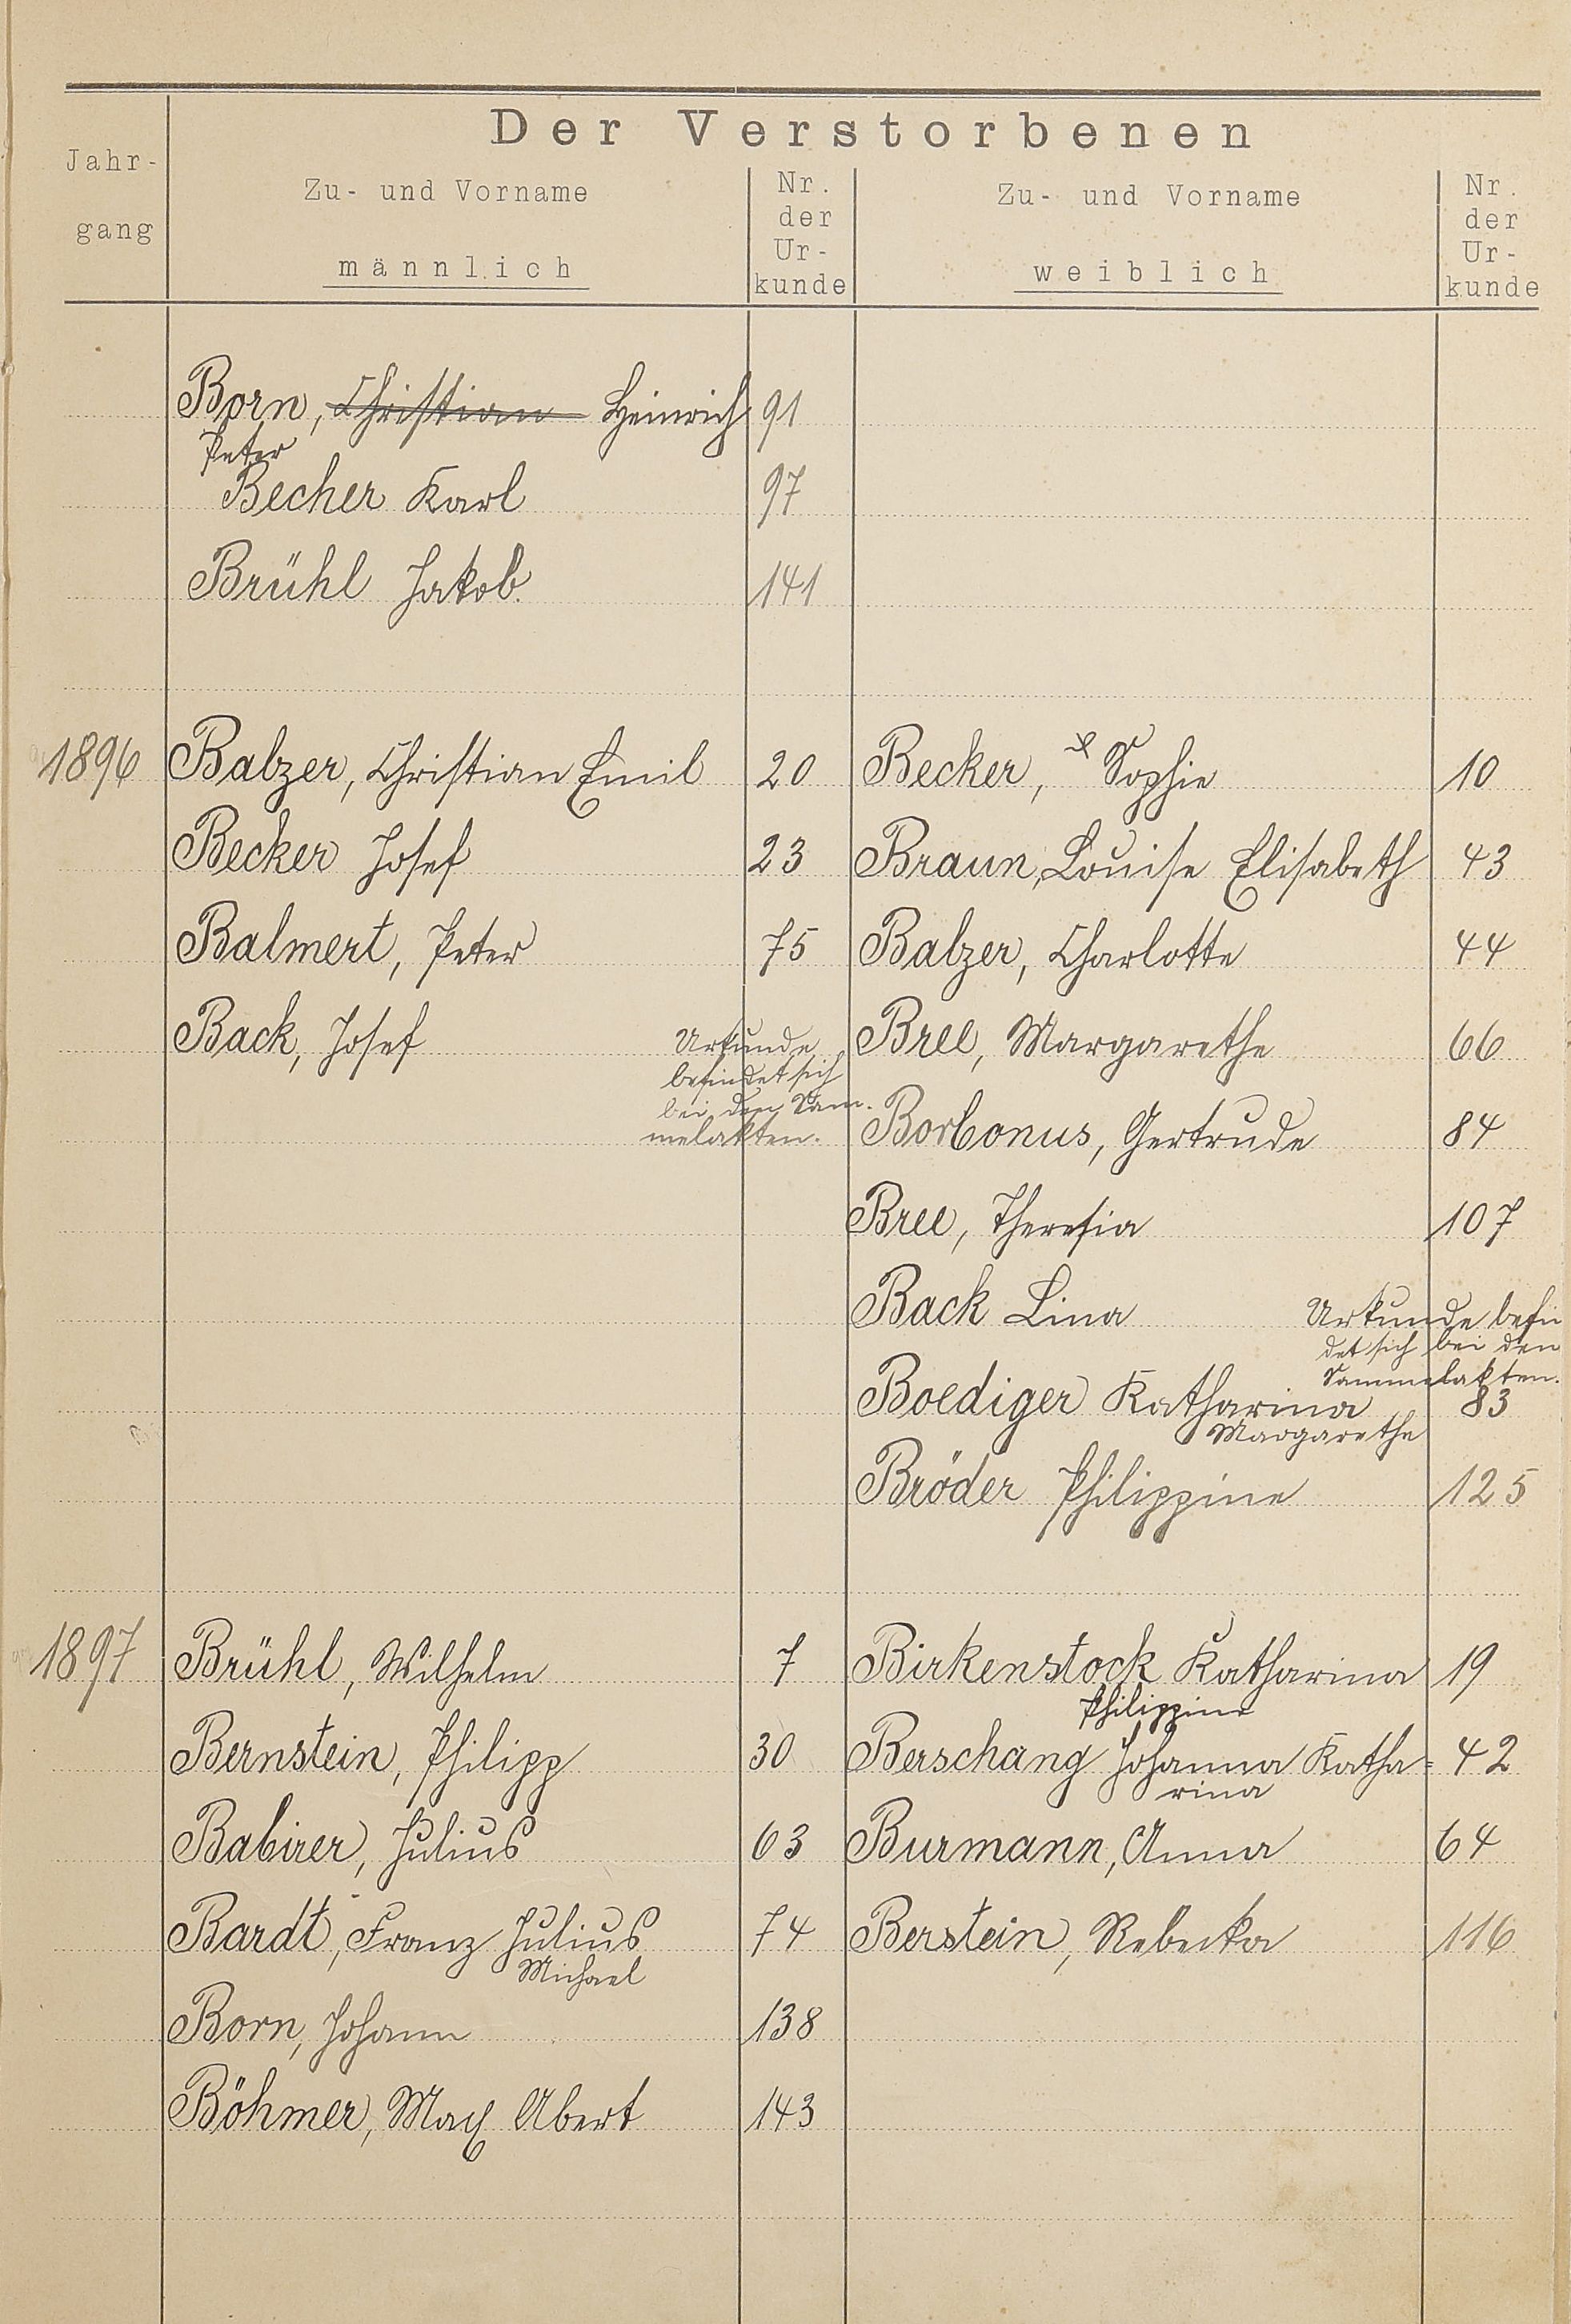 Der Verstorbenen
Jahr-
gang
Zu- und Vorname
männlich
Nr.
der
Ur-
kunde
Zu- und Vorname
weiblich
Nr.
der
Ur-
kunde
Born, Christian Heinrich 91
Peter
Becher Karl 97
Brühl Jakob. 141
1896 Balzer, Christian Emil 20 Becker, Sophie 10
Becker Josef 23 Braun, Louise Elisabeth 43
Balmert, Peter 75 Balzer, Charlotte 44
Back, Josef Urkunde Bree, Margarethe 66
befindet sich
bei den Sam-
melakten. Borbonus, Gertrude 84
Bree, Theresia 107
Back Lina Urkunde befin
det sich bei den
Sammelakten.
Boediger Katharina 83
Margarethe
Bröder Philippine 125
1897 Brühl, Wilhelm 7 Birkenstock Katharina 19
Philippine
Bernstein, Philipp 30 Berschang Johanna Katha= 42
rina
Babirer, Julius 63 Burmann, Anna 64
Bardt, Franz Julius 74 Berstein, Rebecka 116
Michael
Born, Johann 138
Böhmer, Max Abert 143